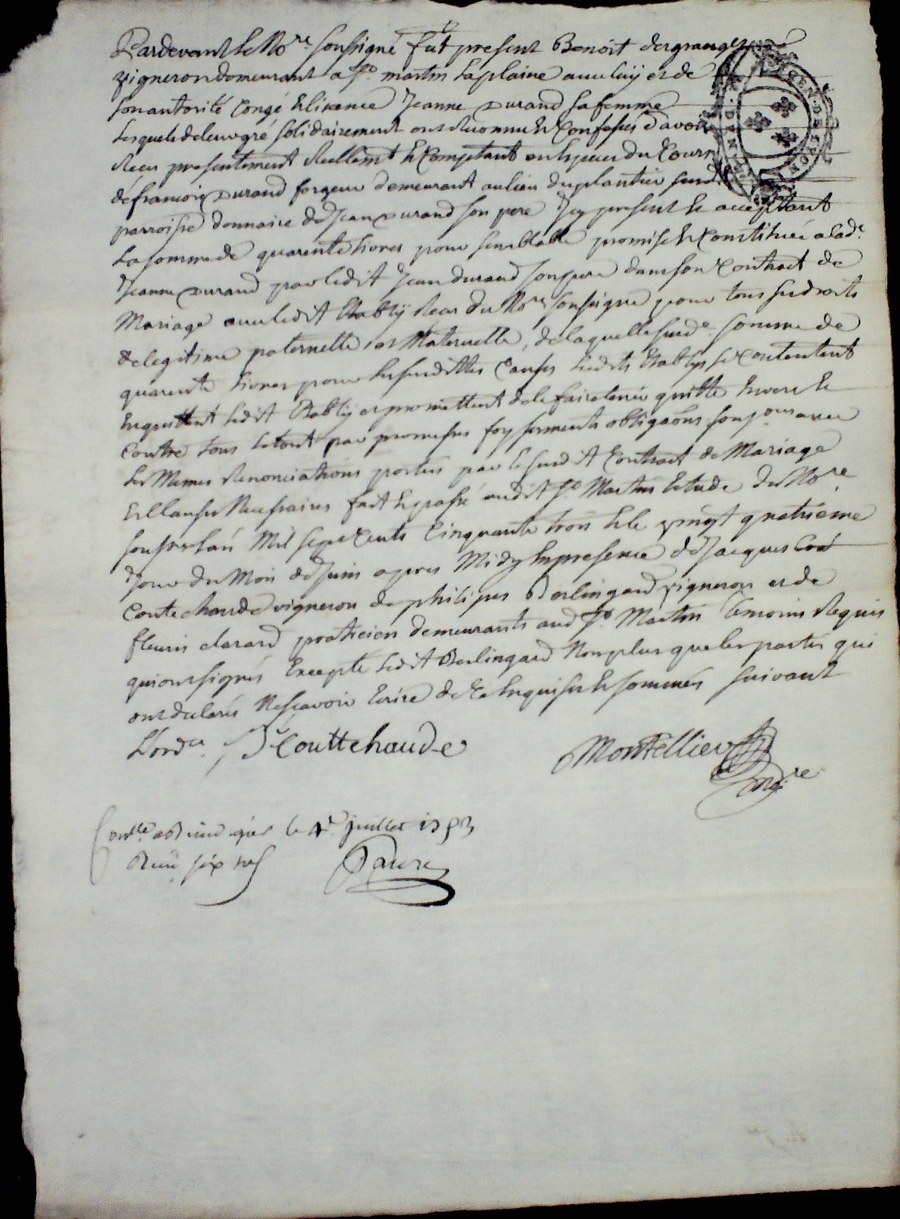 Pardevant le No.re soussigné fut present Benoit desgranges
vigneron demeurant a St martin la plaine avec luy et de
son autorité congé et licance Jeanne Durand sa femme
lesquels de leur gré solidairement ont reconnu et confessés d'avoir
recu presentement reellemt et comptant en especes du cours
de francois Durand forgeur demeurant au lieu du plantier susd
parroisse donnaire de Jean Durand son pere Icy present et acceptant
la somme de quarente livres pour semblable promise et constituée a lad.e
Jeanne Durand par ledit Jean durand son pere dans son contract de
Mariage avec ledit Etably recu du No.re soussigné pour tous ses droits
de legitime paternelle et Maternelle, de laquelle susd.e somme de
quarente livres pour les susdittes causes lesdits Etablys se contentent
en quittent ledit Etably et promettent de le faire tenir quitte envers et
contre tous le tout par promesses foy serments obligaons
les Memes renonciations portés par le susdit Contract de Mariage
et clauses necessaires fait et passé audit St Martin Etude du No.re
soussé l'an Mil sept cents cinquante trois et le vingt quatrieme
Jour du Mois de Juin apres Midy en presence de Jacques
Coutechaude vigneron de philipes Berlingard vigneron et de
fleuris clarard praticien demeurants aud St Martin temoins requis
qui ont signés Excepté ledit Berlingard Non plus que les partés qui
ont declarés Ne scavoir ecrire de ce enquis et sommés suivant
L'ord.ce J Couttechaude Montellier
No.re
GEN. DE LYON
Con.lle a le 4.e juillet 1753
Recu six sols Faure